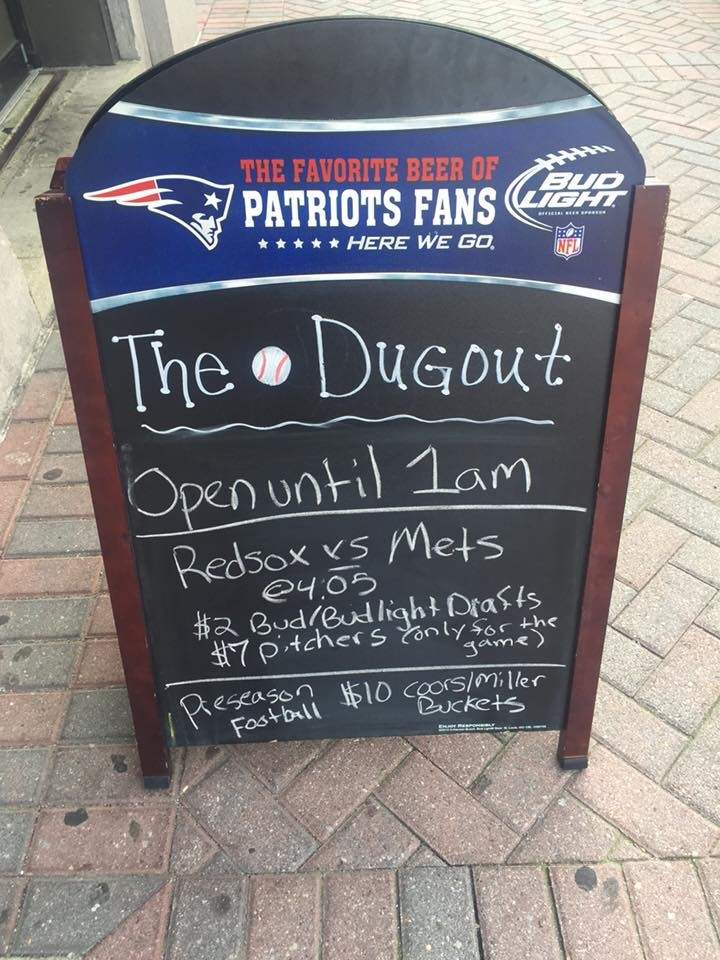 THE FAVORITE BEER OF
PATRIOTS FANS
HERE WE GO.
BUD LIGHT
OFFICIAL BEER SPONSOR
NFL
The Dugout
Open until 1am
Redsox vs Mets
@4:05
$2 Bud/Budlight Drafts
$7 pitchers (only for the game)
Preseason Football $10 coors/Miller Buckets
ENJOY RESPONSIBLY